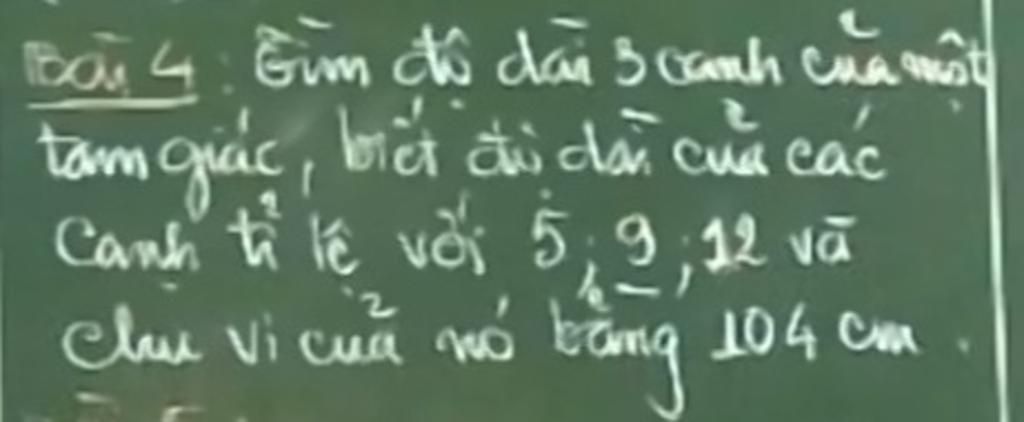 Bài 4: Tìm độ dài 3 cạnh của một
tam giác, biết độ dài của các
cạnh tỉ lệ với 5; 9; 12 và
chu vi của nó bằng 104 cm.